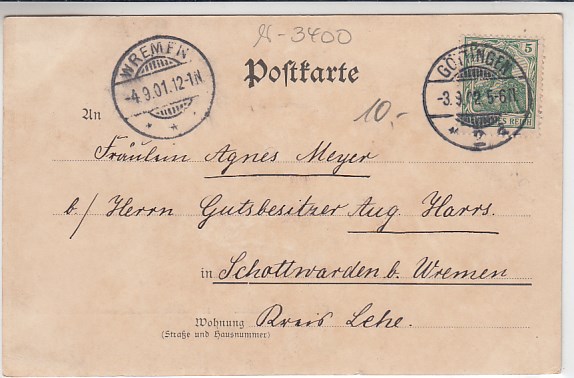 -3400
WREMEN
-4.9.01.12-1N
* *
Postkarte
5
GÖTTINGEN
-3.9.01.5-6N
S REICH
* 2 a
An
10,-
Fräulein Agnes Meyer
b./ Herrn Gutsbesitzer Aug. Harrs.
in Schottwarden b. Wremen
Wohnung Kreis Lehe.
(Straße und Hausnummer)